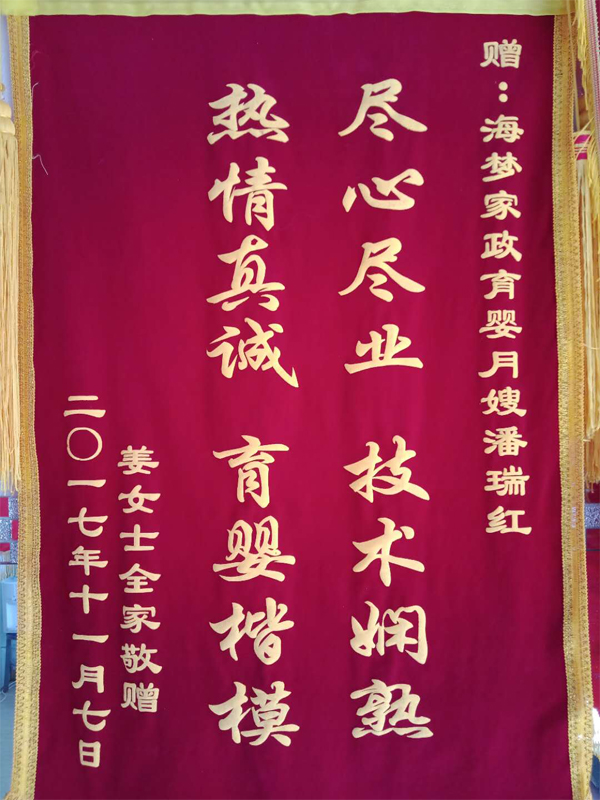 赠：海梦家政育婴月嫂潘瑞红
尽心尽业 技术娴熟
热情真诚 育婴楷模
姜女士全家敬赠
二〇一七年十一月七日